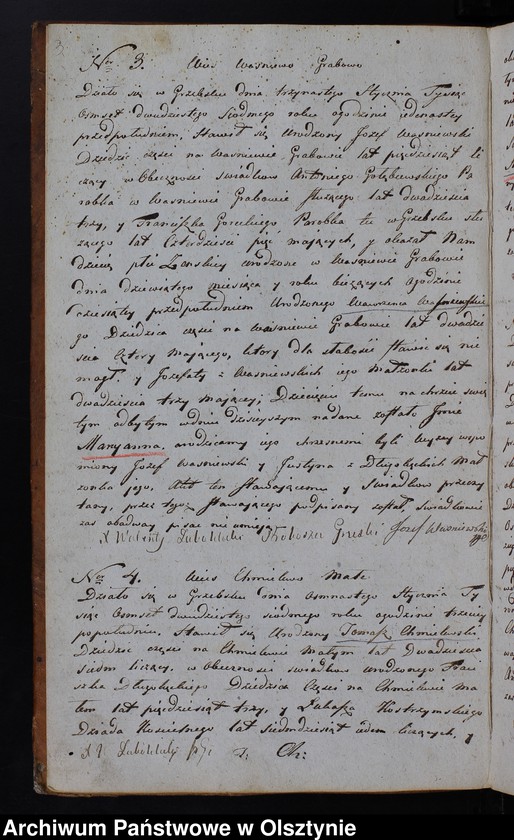 Nro 3. Wieś Wasniewo Grabowo
Działo się w Grzebsku dnia trzynastego Stycznia Tysiąc
osmset dwudziestego siodmego roku ogodzinie iedenastey
przedpołudniem, Stawił się Urodzony Jozef Wasniewski
Dziedzic części na Wasniewie Grabowie lat pięcdziesiąt li
czący w Obecności swiadkow Antoniego Gołębiewskiego Pa
robka w Wasniewie Grabowie służącego lat dwadziescia
trzy, y Franciszka Goreckiego Parobka tu w Grzebsku słu
zącego lat Czterdziesci pięć maiących, y okazał Nam
dziecie płci Zenskiey urodzone w Wasniewie Grabowie
dnia dziewiątego miesiąca y roku bieżących ogodzinie
dziesiątey przedpołudniem Urodzonego Wawrzenca Wasniewskie
go Dziedzica części na Wasniewie Grabowie lat dwadzie
scia cztery maiącego, ktory dla słabości stawic się nie
mogł. y Jozefaty z Wasniewskich iego Małzonki lat
dwadziescia trzy maiącey; Dziecięciu temu na chrzcie swię
tym odbytym wdniu dzisieyszym nadane zostało Imie
Maryanna, arodzicami iego chrzesnemi byli wyzey wspo
mniony Jozef Wasniewski y Justyna z Długołęckich Mał
zonka jego. Akt ten stawaiącemu y Swiadkom przeczy
tany, przez tegoż stawaiącego podpisany został, swiadkowie
zas obadway pisac nie umieią.
Jozef Wasniewski
Nro 4. Wieś Chmielewo Małe.
Działo się w Grzebsku dnia osmnastego Stycznia Ty
siąc osmset dwudziestego siodmego roku ogodzinie trzeciey
popołudniu. Stawił się Urodzony Tomasz Chmielewski
Dziedzic części na Chmielewie Małym lat Dwadziescia
siedm liczący, w Obecności swiadkow urodzonego Fran
ciszka Długołęckiego Dziedzica Części na Chmielewie Ma
łem lat pięcdziesiąt trzy, y Łukasza Kostrzynskiego
Dziada Koscielnego lat siedmdziesiąt siedm liczących, y
T: Ch:
Archiwum Państwowe w Olsztynie